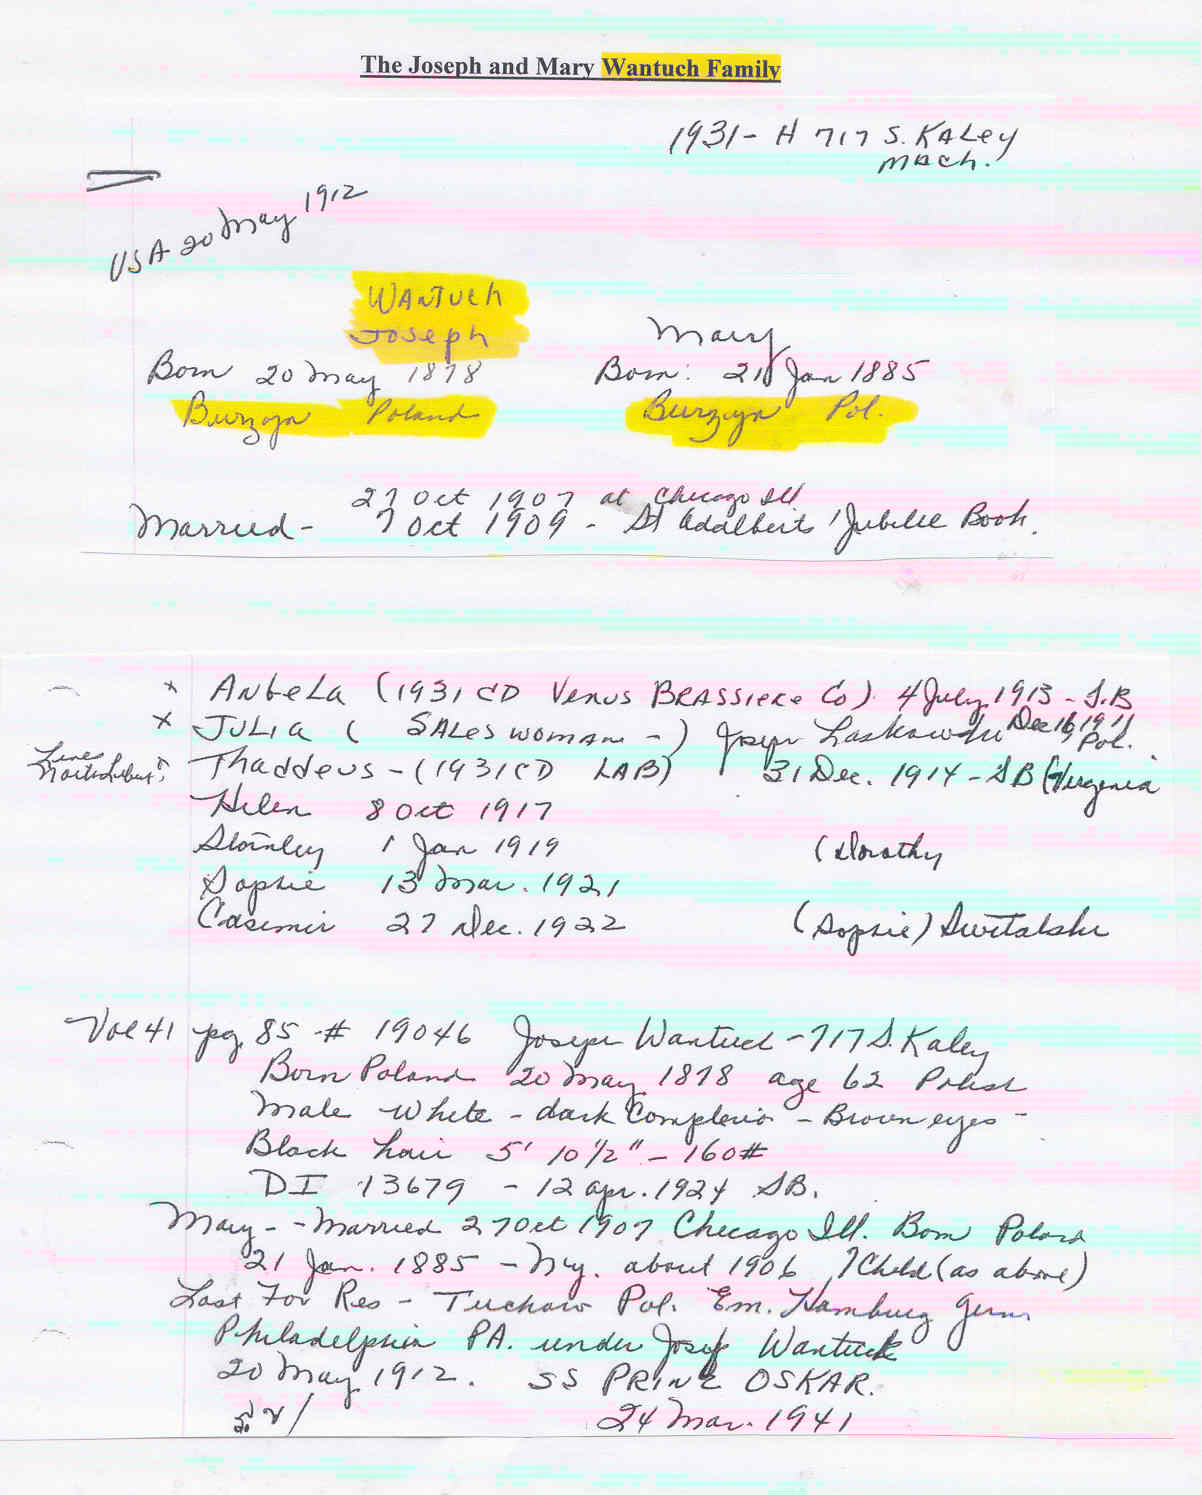 The Joseph and Mary Wantuch Family
1931- H 717 S. KALEY
MACH.
USA 20 May 1912
WANTUCH
JOSEPH
Mary
Born 20 May 1878
Born: 21 Jan 1885
Burzyn Poland
Burzyn Pol.
27 Oct 1907 at Chicago Ill
Married - 7 Oct 1909 - St Adalberts Jubilee Book.
x ANGELA (1931 CD VENUS BRASSIERE CO). 4 July 1913 - S.B
x JULIA ( SALESWOMAN -) Joseph Laskowski Dec 16, 1911 Pol.
Thaddeus - (1931 CD LAB) 31 Dec. 1914 - SB (Virginia
Helen 8 Oct 1917
Stanley 1 Jan 1919 (Dorothy
Sophie 13 Mar. 1921
Casimir 27 Dec. 1922 (Sophie) Switalski
Vol 41 pg. 85 - # 19046 Joseph Wantuch - 717 S. Kaley
Born Poland 20 May 1878 age 62 Polish
Male White - dark Complexion - Brown eyes -
Black hair 5' 10 1/2" - 160#
DI 13679 - 12 Apr. 1924 SB.
Mary - - Married 27 Oct 1907 Chicago Ill. Born Poland
21 Jan. 1885 - N.Y. about 1906 7 Child (as above)
Last For Res - Tuchow Pol. Em. Hamburg Germ
Philadelphia PA. under Josef Wantuck
20 May 1912. SS PRINZ OSKAR.
24 Mar. 1941